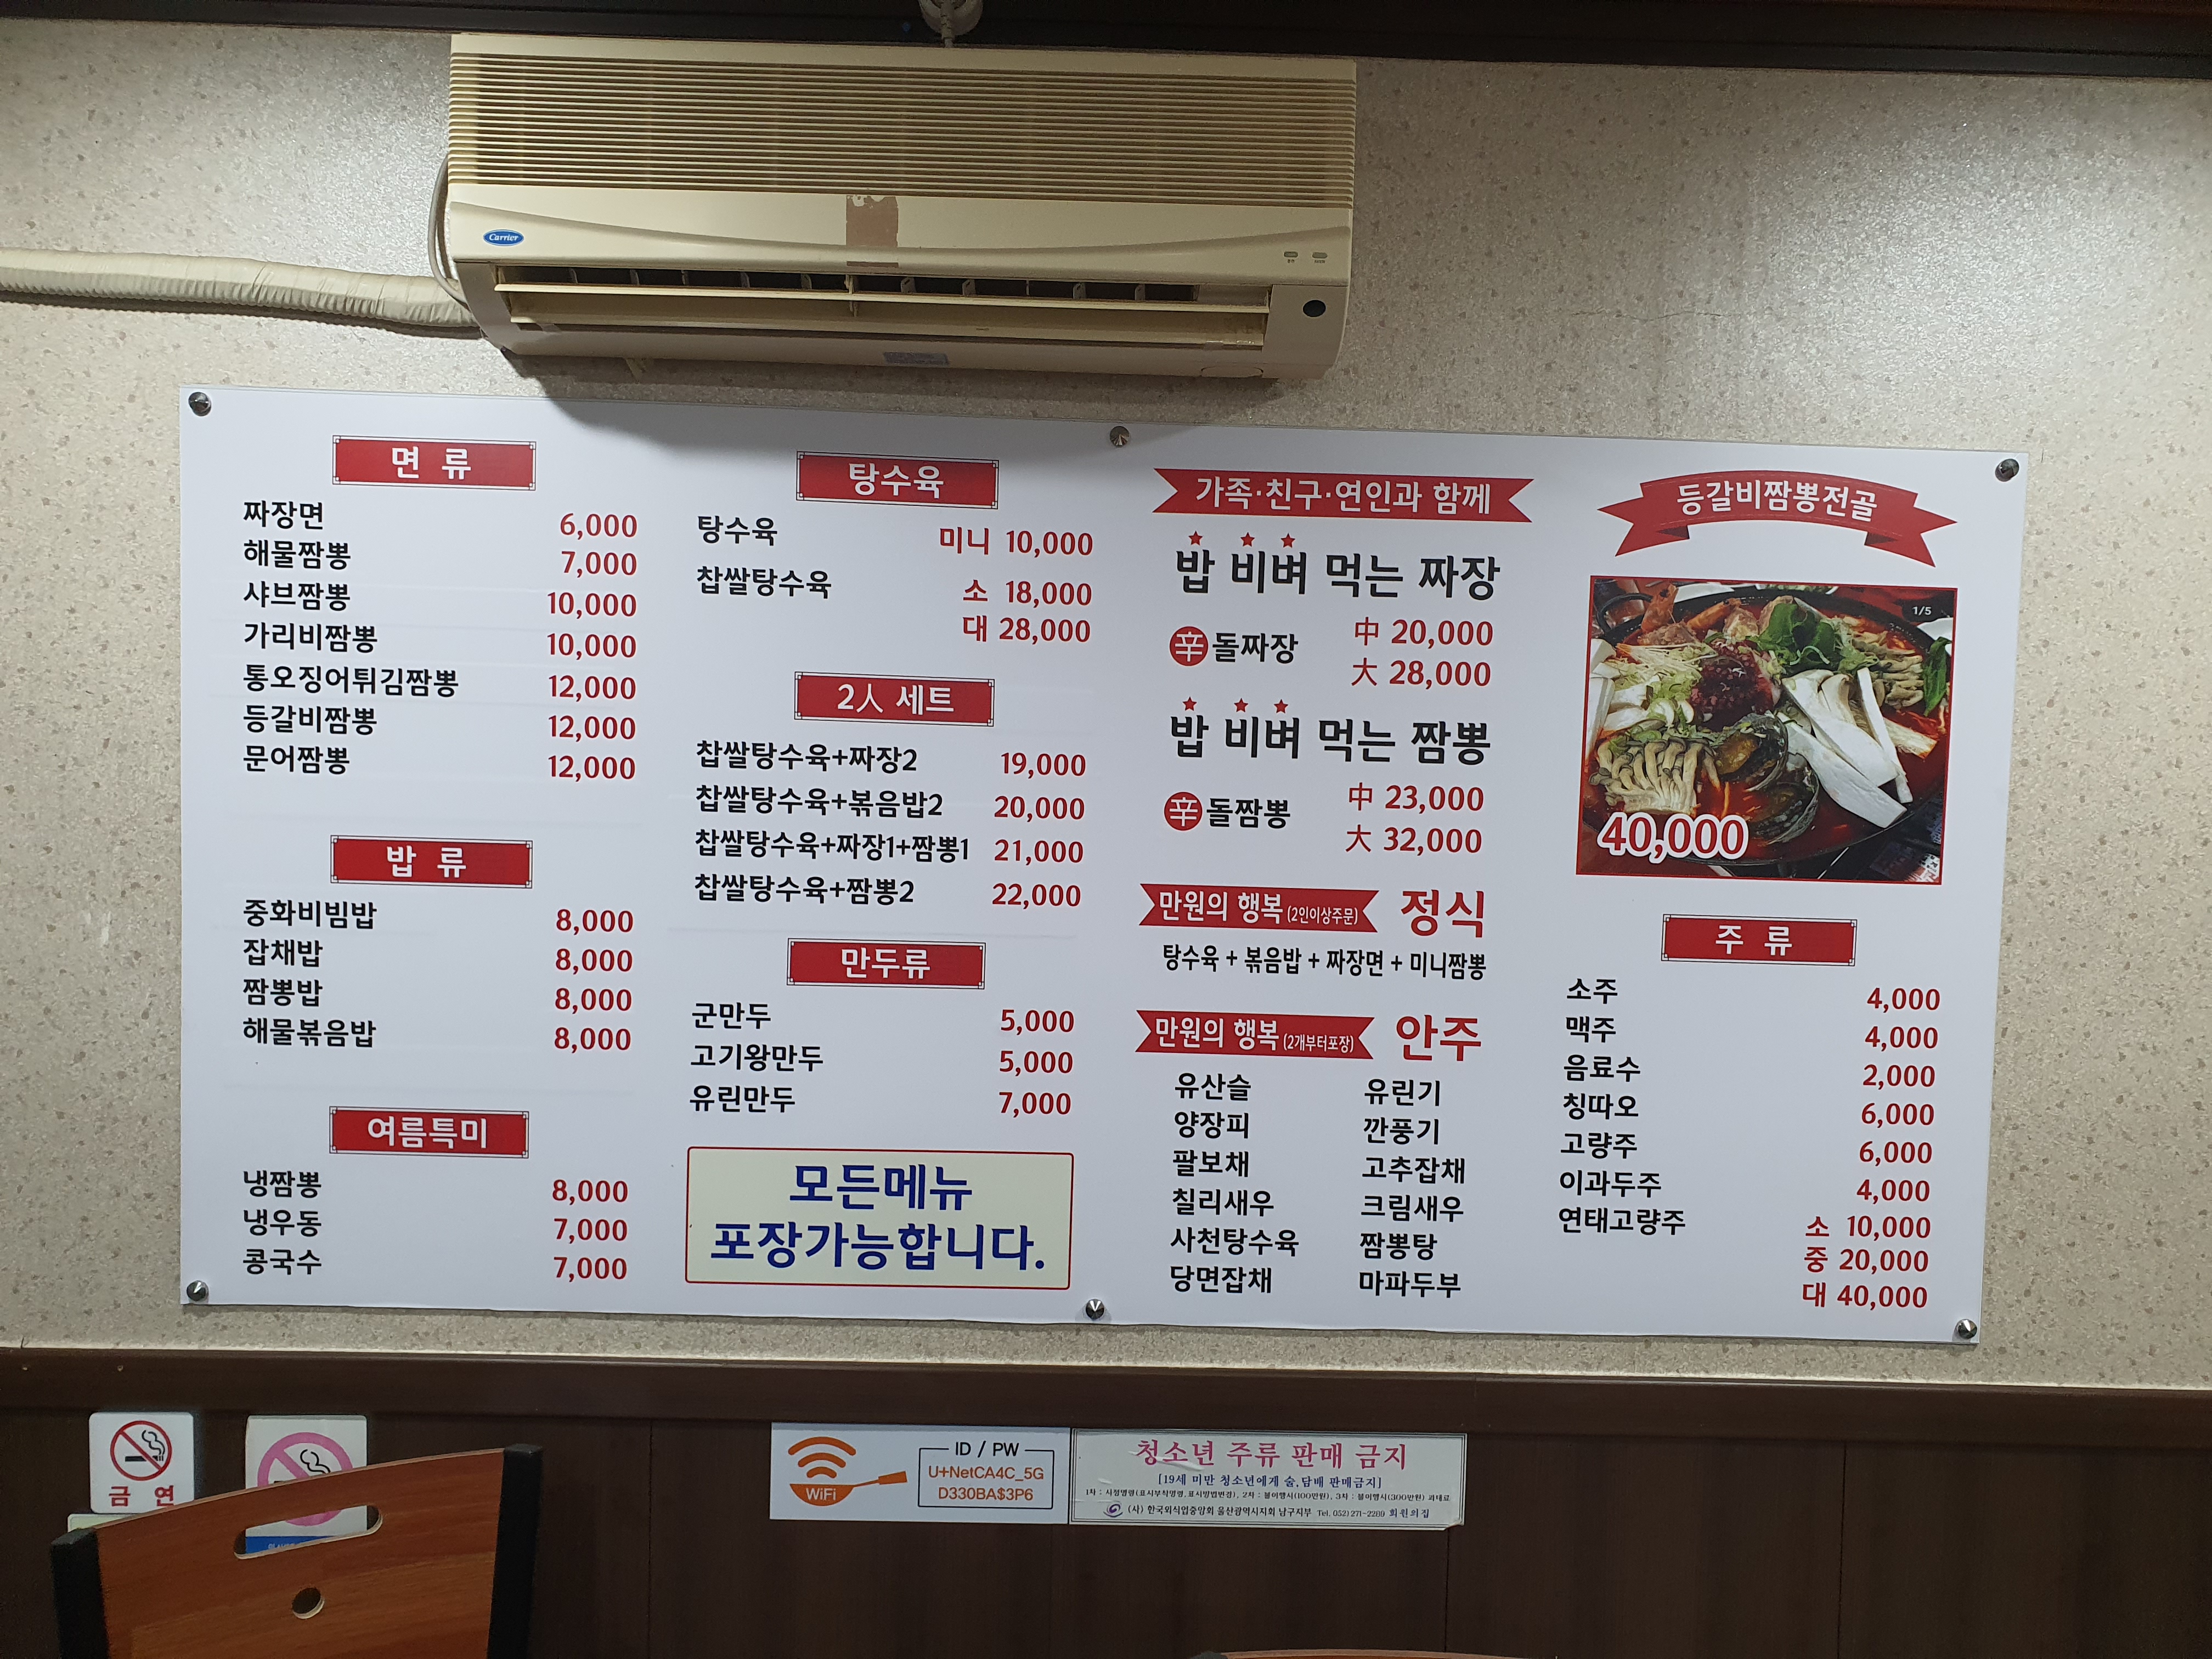 Carrier
면 류
짜장면 6,000
해물짬뽕 7,000
샤브짬뽕 10,000
가리비짬뽕 10,000
통오징어튀김짬뽕 12,000
등갈비짬뽕 12,000
문어짬뽕 12,000
밥 류
중화비빔밥 8,000
잡채밥 8,000
짬뽕밥 8,000
해물볶음밥 8,000
여름특미
냉짬뽕 8,000
냉우동 7,000
콩국수 7,000
탕수육
탕수육 미니 10,000
찹쌀탕수육 소 18,000
대 28,000
2人 세트
찹쌀탕수육+짜장2 19,000
찹쌀탕수육+볶음밥2 20,000
찹쌀탕수육+짜장1+짬뽕1 21,000
찹쌀탕수육+짬뽕2 22,000
만두류
군만두 5,000
고기왕만두 5,000
유린만두 7,000
모든메뉴
포장가능합니다.
가족·친구·연인과 함께
밥 비벼 먹는 짜장
辛돌짜장 中 20,000
大 28,000
밥 비벼 먹는 짬뽕
辛돌짬뽕 中 23,000
大 32,000
만원의 행복 (2인이상주문) 정식
탕수육 + 볶음밥 + 짜장면 + 미니짬뽕
만원의 행복 (2개부터포장) 안주
유산슬 유린기
양장피 깐풍기
팔보채 고추잡채
칠리새우 크림새우
사천탕수육 짬뽕탕
당면잡채 마파두부
등갈비짬뽕전골
1/5
40,000
주 류
소주 4,000
맥주 4,000
음료수 2,000
칭따오 6,000
고량주 6,000
이과두주 4,000
연태고량주 소 10,000
중 20,000
대 40,000
금 연
WiFi
ID / PW
U+NetCA4C_5G
D330BA$3P6
청소년 주류 판매 금지
[19세 미만 청소년에게 술,담배 판매금지]
1차 : 시정명령(표시부착명령,표시방법변경), 2차 : 불이행시(100만원), 3차 : 불이행시(300만원) 과태료
(사) 한국외식업중앙회 울산광역시지회 남구지부 Tel. 052) 271-2289 회원의집